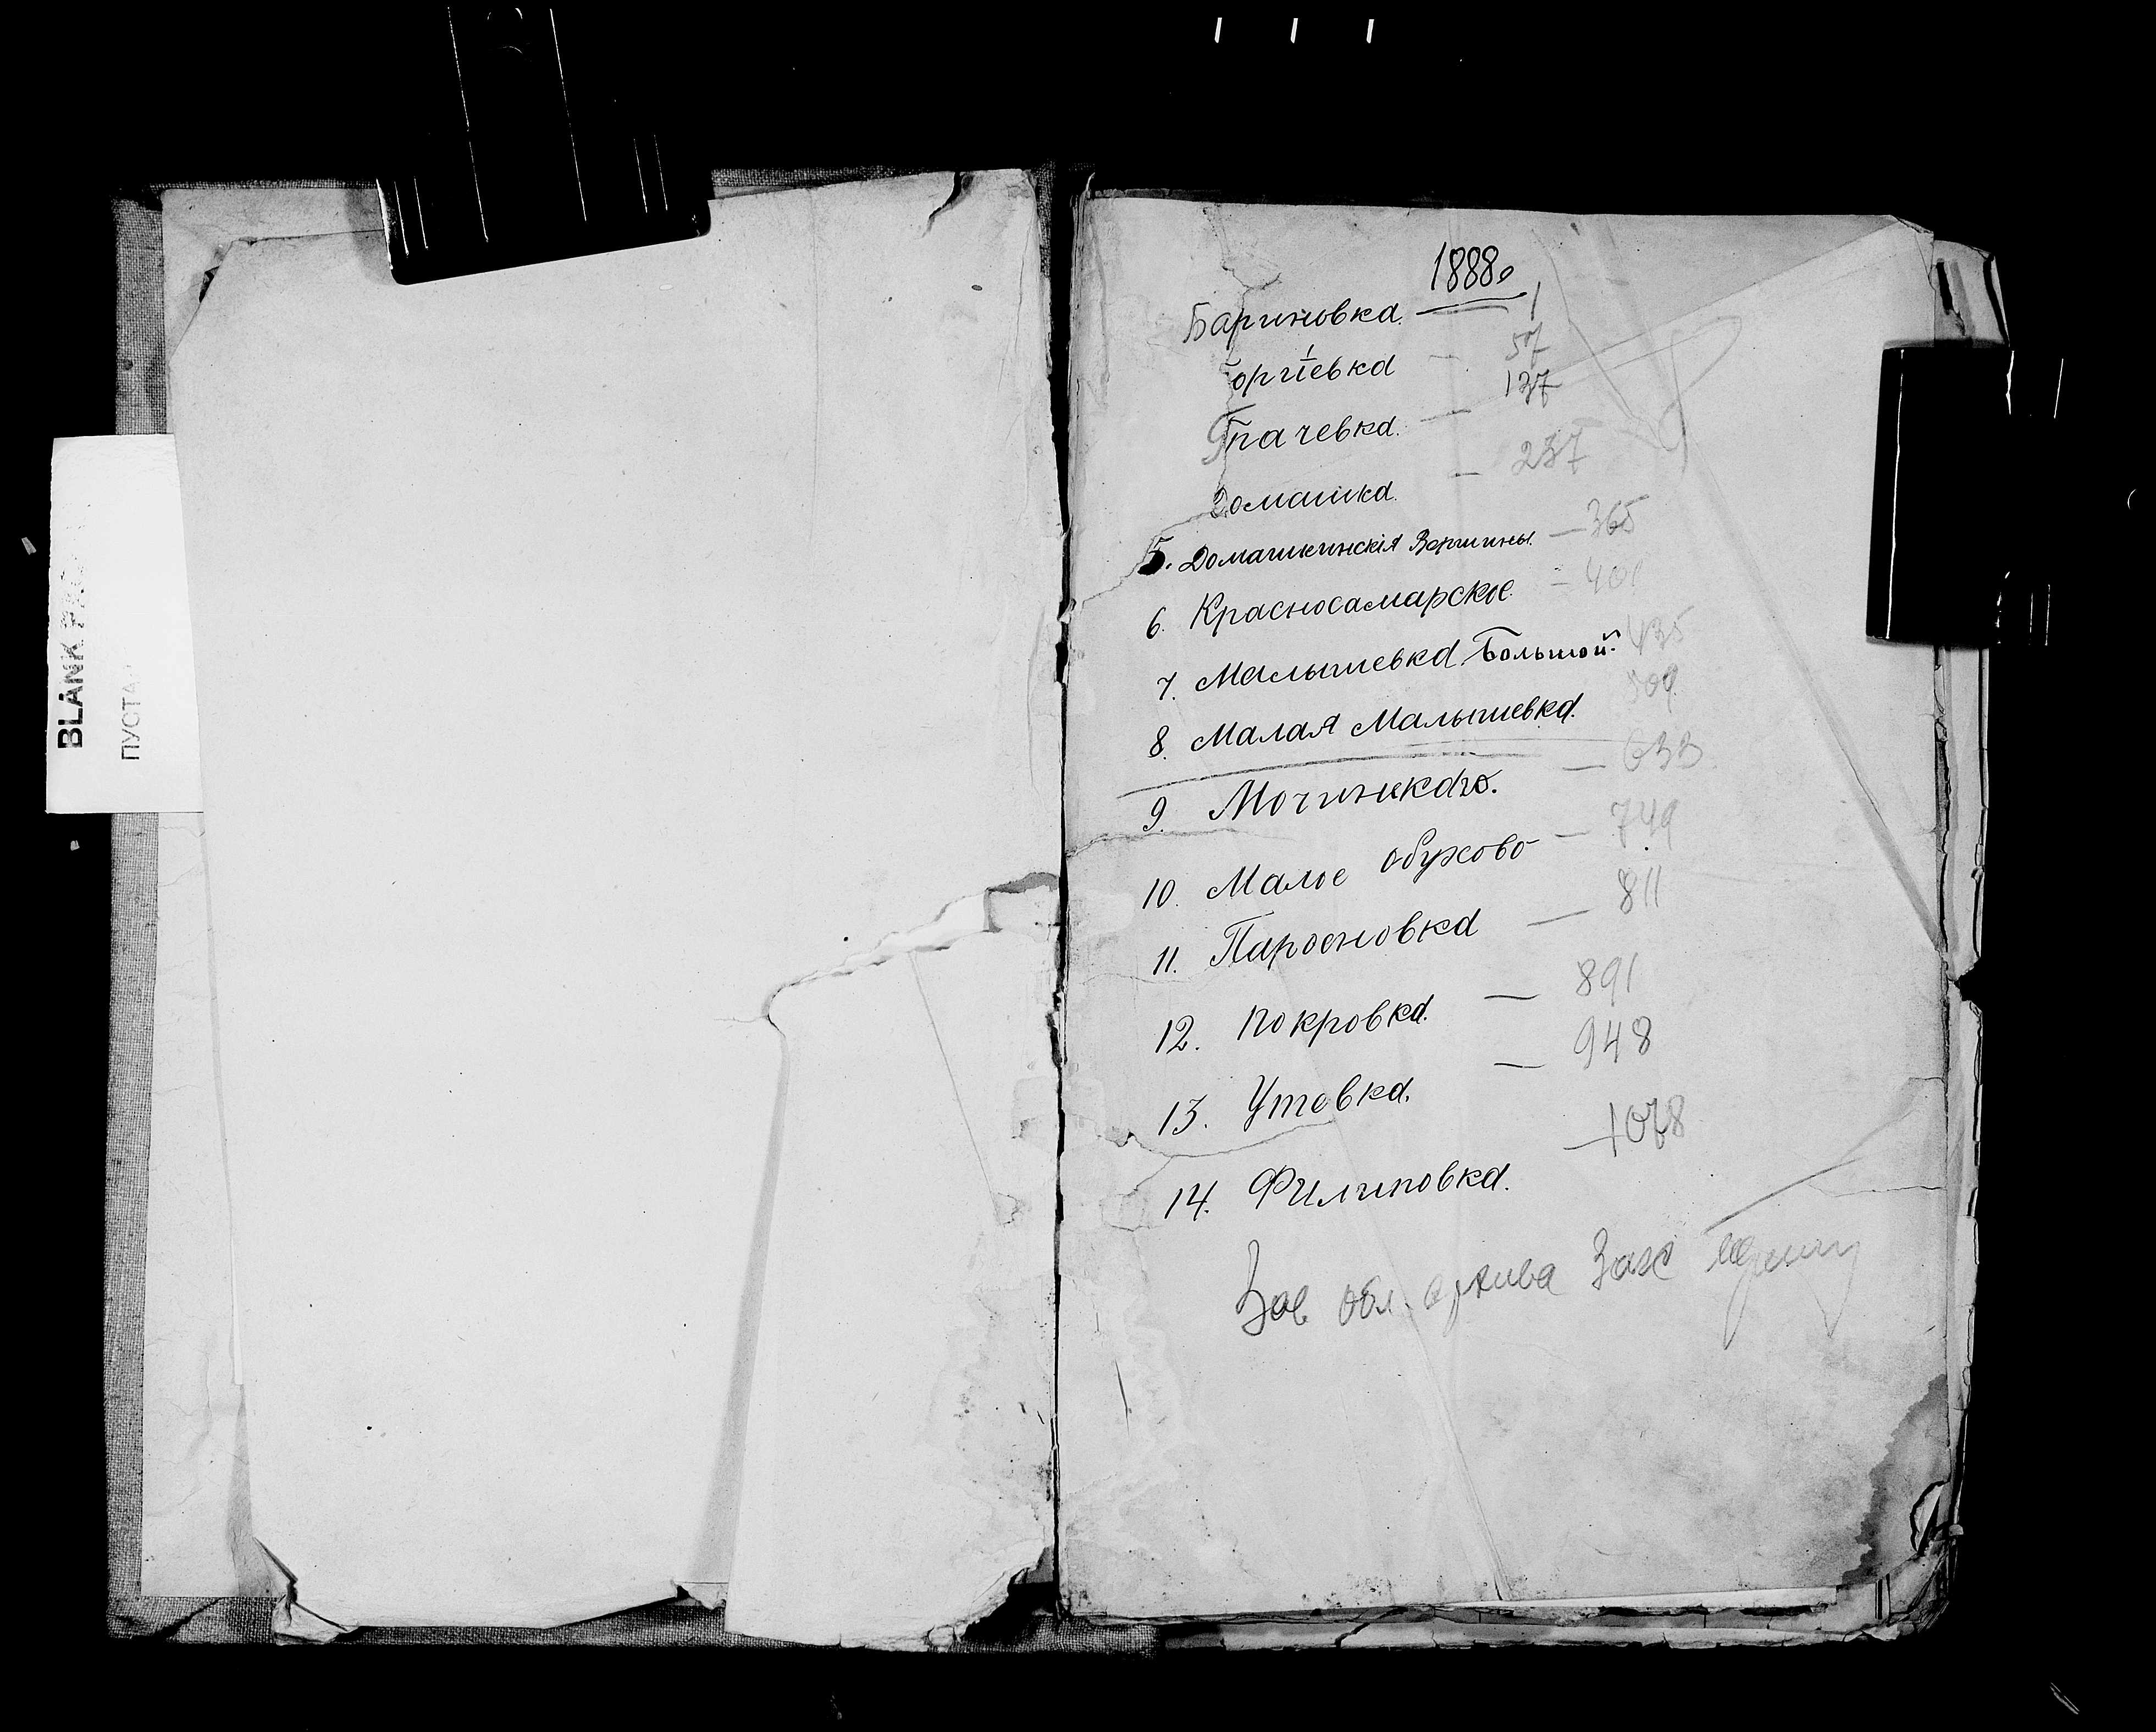 BLANK
ПУСТА
1888 г
Бариновка. — 1
оргіевка — 57
Грачевка. — 137
Домашка. — 237
5. Домашкинскія Вершины. — 365
6. Красносамарское. — 401
7. Малышевка Большой. 435
8. Малая Малышевка. 509
9. — 633
10. Малое Обухово — 749
11. — 811
12. Покровка. — 891
13. Утевка. — 948
14. Филиповка. — 1078
Зав обл. архива